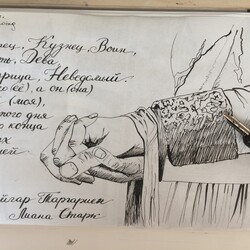 нец, Кузнец, Воин,
ть, Дева,
рица, Неведомый.
о(её), а он(она)
(моя),
того дня
о конца
их
ней
йгар Таргариен
Лиана Старк